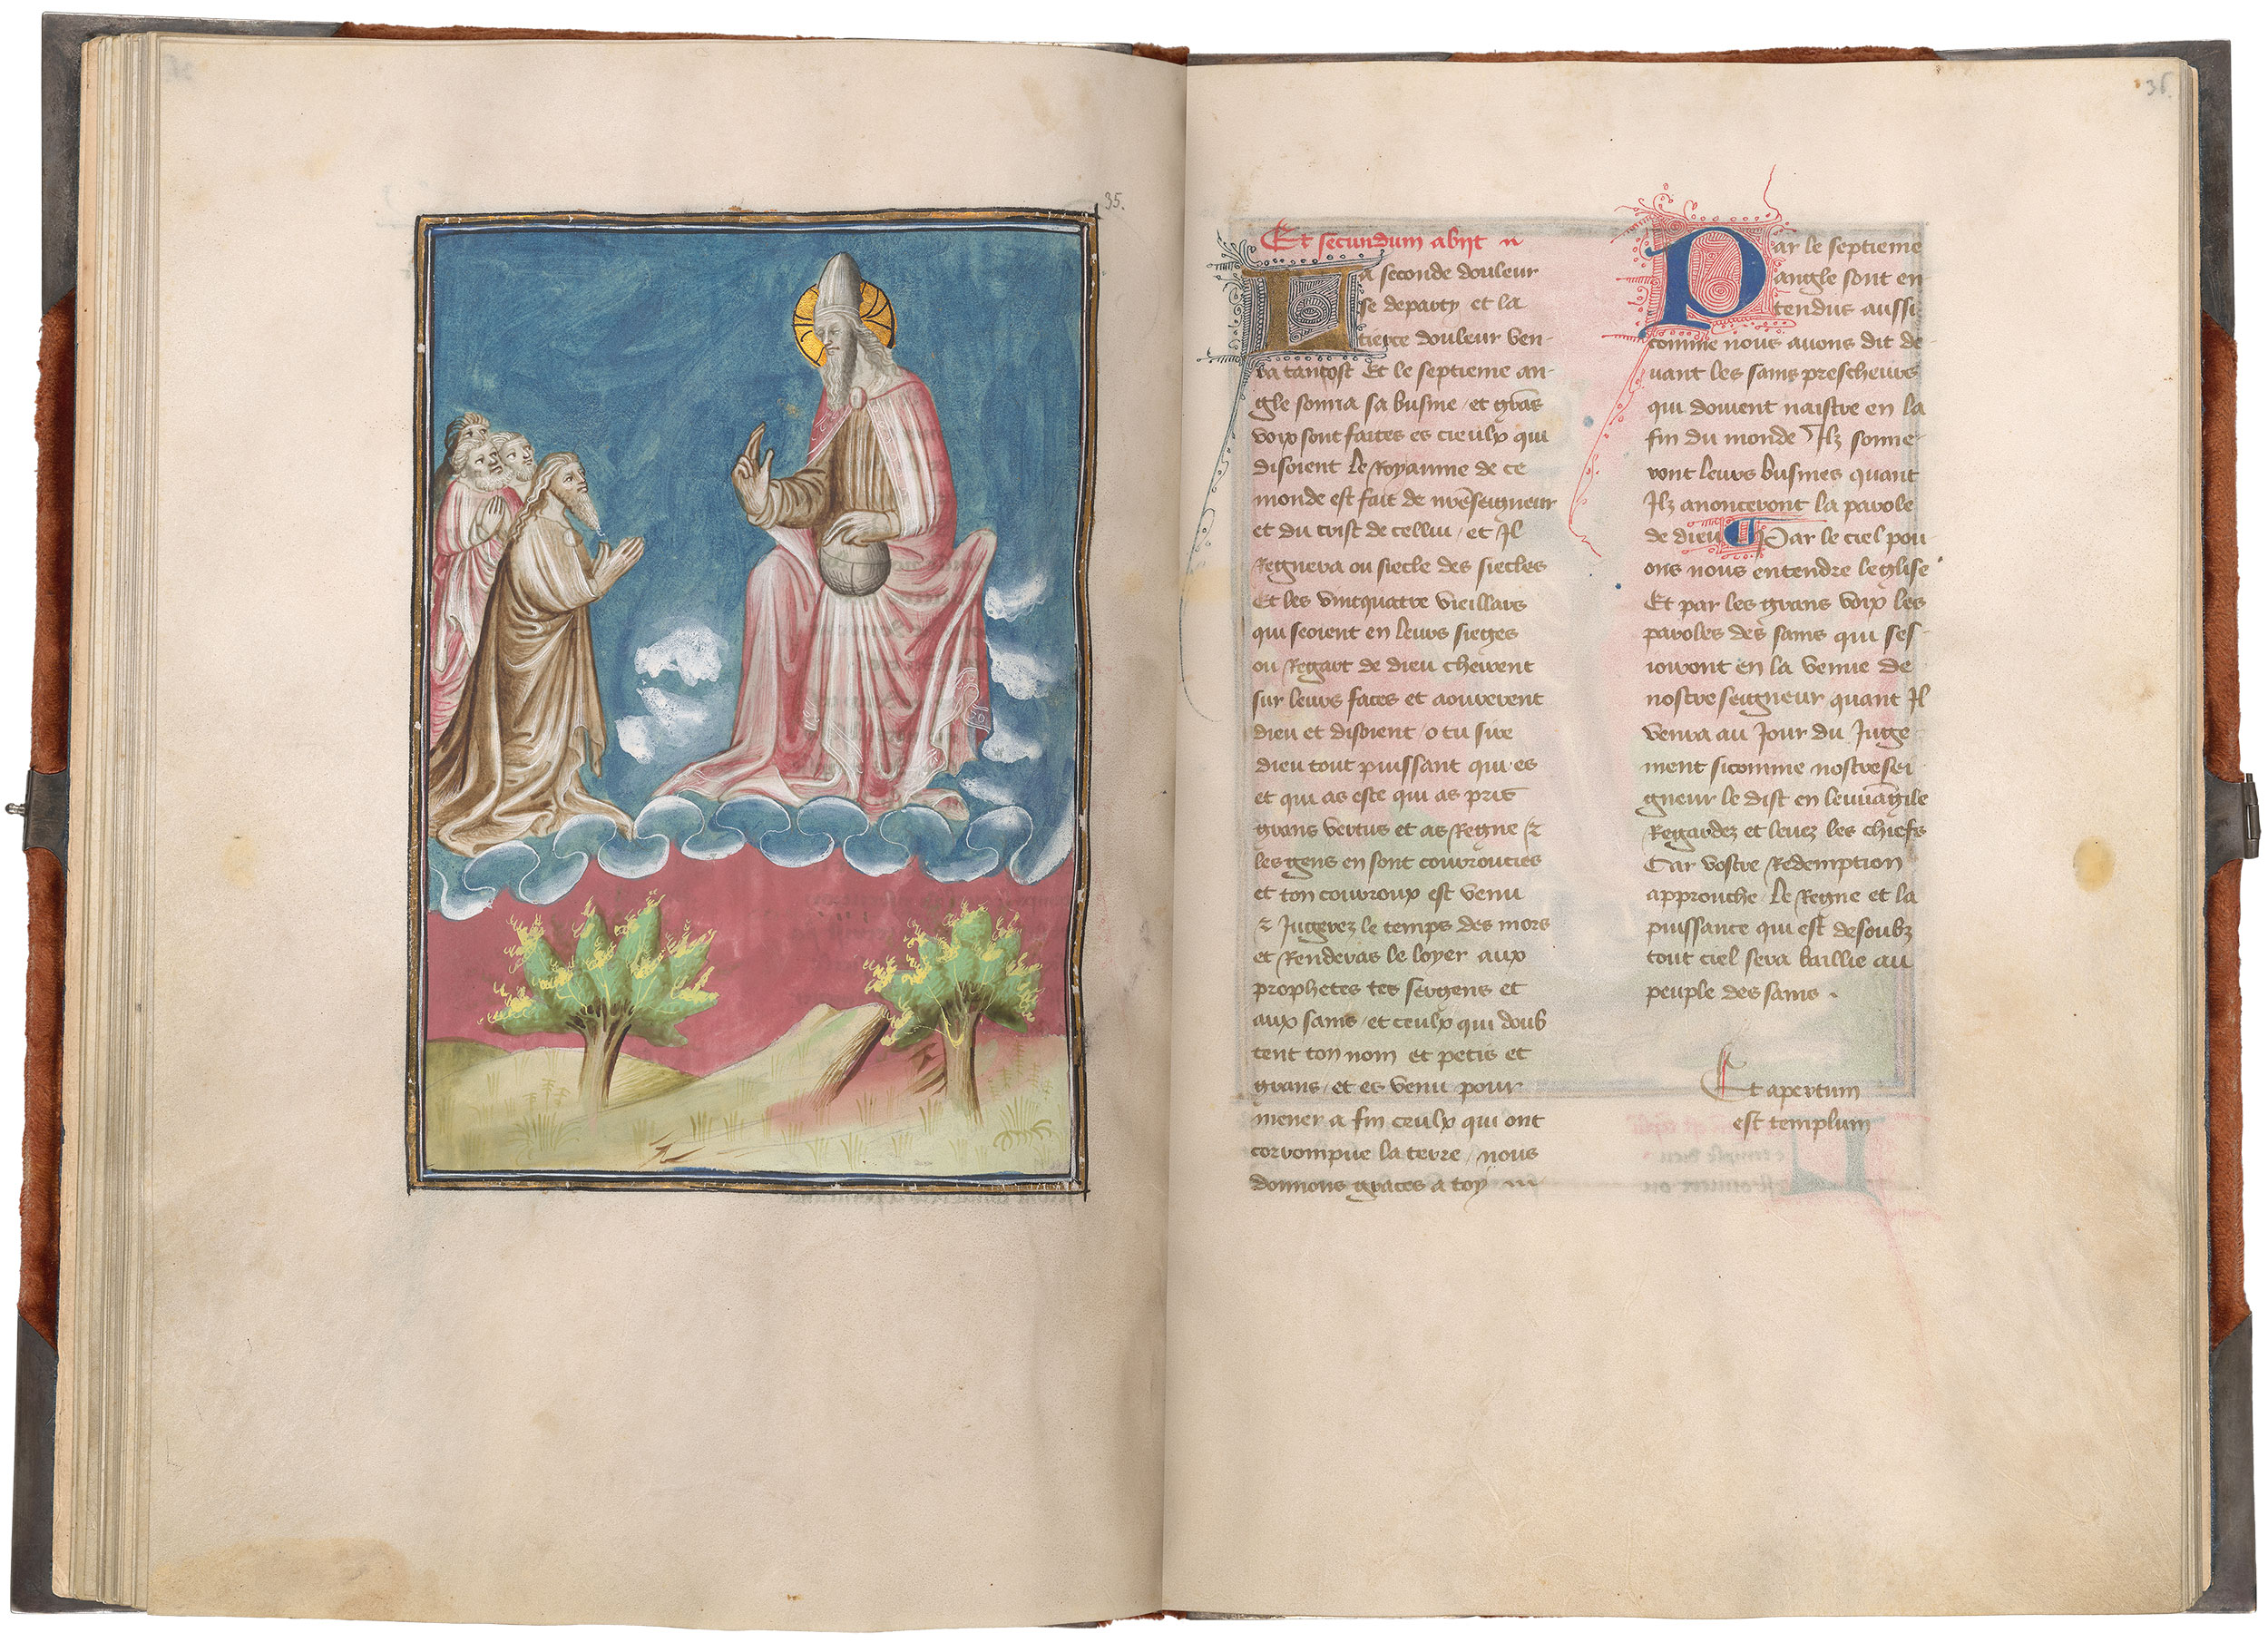 35.
36.
Et secundum abiit
La seconde douleur
se departy et la
tierce douleur ven-
ra tantost Et le septieme an-
gle sonna sa busine / et grãs
voix sont faites es cieulx qui
disoient le Royaume de ce
monde est fait de nrẽseigneur
et du crist de cellui / et Il
Regnera ou siecle des siecles
Et les vintquatre vieillars
qui seoient en leurs sieges
ou Regart de dieu cheirent
sur leurs faces et aourerent
dieu et disoient / o tu sire
dieu tout puissant qui es
et qui as este qui as pris
grans vertus et as Regne &
les gens en sont courroucies
et ton courroux est venu
& Jugerez le temps des mors
et Renderas le loyer aux
prophetes tes sergens et
aux sains / et ceulx qui doub
tent ton nom et petis et
grans / et es venu pour
mener a fin ceulx qui ont
corrompue la terre / nous
donnons graces a toy
Par le septieme
angle sont en
tendus aussi
comme nous auons dit de-
uant les sains prescheurs
qui doiuent naistre en la
fin du monde Ilz sonne-
ront leurs busines quant
Ilz anonceront la parole
de dieu ¶ Par le ciel pou-
ons nous entendre leglise
Et par les grans voix les
paroles des sains qui ses-
iouront en la venue de
nostre seigneur quant Il
venra au Jour du Juge-
ment sicomme nostre sei-
gneur le dist en leuuãgile
Regardez et leuez les chiefs
Car vostre Redemption
approuche le Regne et la
puissance qui est desoubz
tout ciel sera baillie au
peuple des sains .
Et apertum
est templum